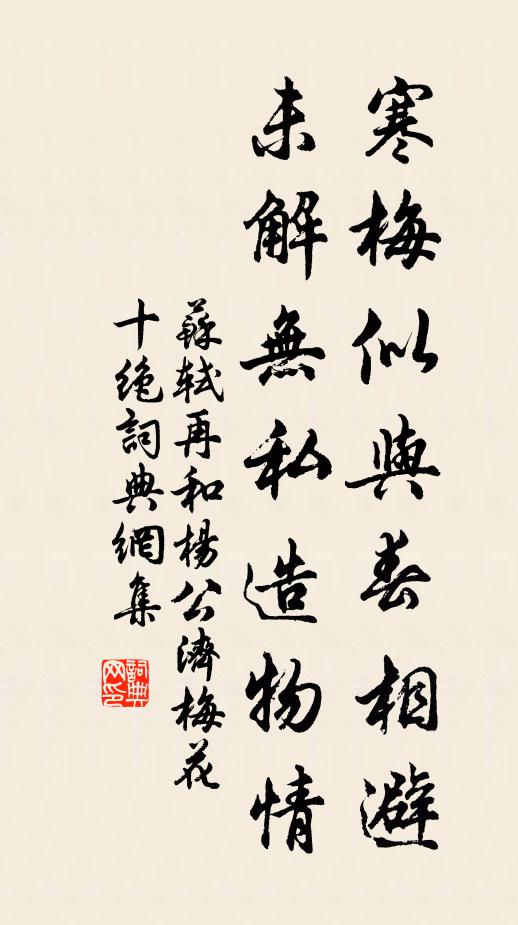 寒梅似與春相避
未解無私造物情
蘇軾再和楊公濟梅花
十絶詞典網集
詞典网印